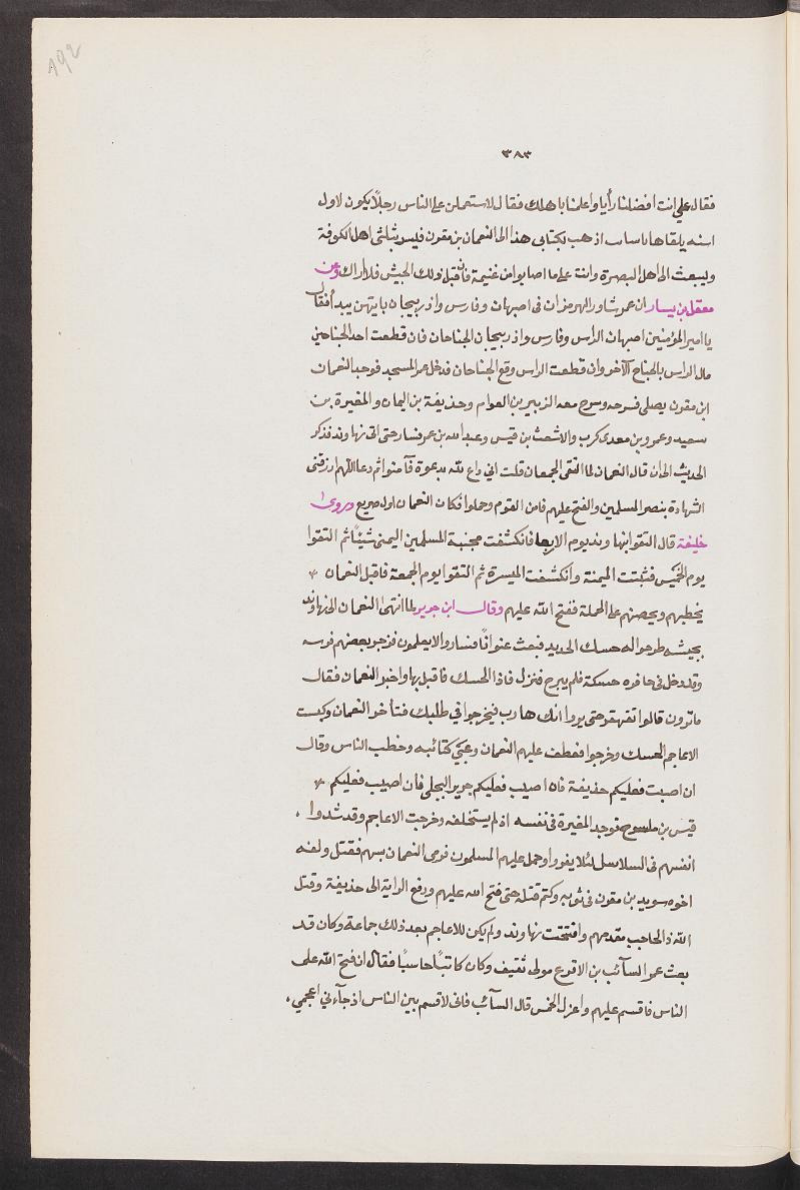 192
٣٨٣
فقال علي انت افضلنا رأيا واعلمنا باهلك فقال لاستعملن على الناس رجلاً يكون لاول
اسنه يلقاها ياساب اذهب بكتابى هذا الى النعمان بن مقرن فليسر بثلثى اهل الكوفة
وليبعث الى اهل البصرة وانت على ما اصابوا من غنيمة فان قتل ذلك الجيش فلا اراك وعن
معقل بن يسار ان عمر شاور الهرمزان فى اصبهان وفارس واذربيجان بايتهن يبدأ فقال
يا امير المؤمنين اصبهان الراس وفارس واذربيجان الجناحان فان قطعت احد الجناحين
مال الراس بالجناح الآخر وان قطعت الراس وقع الجناحان فدخل عمر المسجد فوجد النعمان
ابن مقرن يصلى فسرحه وسرح معه الزبير بن العوام وحذيفة بن اليمان والمغيرة بن
سعيد وعمرو بن معدى كرب والاشعث بن قيس وعبد الله بن عمر فسار حتى اتى نهاوند فذكر
الحديث الى ان قال النعمان لما التقى الجمعان قلت انى داع لله بدعوة فآمنوا ثم دعا اللهم ارزقنى
الشهادة بنصر المسلمين والفتح عليهم فامن القوم وحملوا فكان النعمان اول صريع وروى
خليفة قال التقوا بنهاوند يوم الاربعا فانكشفت مجنبة المسلمين اليمنى شيئاً ثم التقوا
يوم الخميس فثبتت الميمنة وانكشفت الميسرة ثم التقوا يوم الجمعة فاقبل النعمان
يخطبهم ويحضهم على الحملة ففتح الله عليهم وقال ابن جرير لما انتهى النعمان الى نهاوند
بجيشه طرحوا له حسك الحديد فبعث عنوانًا فساروا لا يعلمون فزجر بعضهم فرسه
وقد دخل فى حافره حسكة فلم يبرح فنزل فاذا الحسك فاقبل بها واخبر النعمان فقال
ما ترون قالوا تقهقر حتى يروا انك هارب فيخرجوا في طلبك فتأخر النعمان وكبست
الاعاجم الحسك وخرجوا فعطف عليهم النعمان وعبى كتائبه وخطب الناس وقال
ان اصبت فعليكم حذيفة فان اصيب فعليكم جرير البجلى فان اصيب فعليكم
قيس بن مكسوح فوجد المغيرة فى نفسه اذ لم يستخلفه وخرجت الاعاجم وقد شدوا
انفسهم فى السلاسل لئلا يفروا وحمل عليهم المسلمون فرمى النعمان بسهم فقتل ولفه
اخوه سويد بن مقرن فى ثوبه وكتم قتله حتى فتح الله عليهم ودفع الراية الى حذيفة وقتل
الله ذا الحاجب مقدمهم وافتتحت نهاوند ولم يكن للاعاجم بعد ذلك جماعة وكان قد
بعث عمر السآئب بن الاقرع مولى ثقيف وكان كاتبًا حاسبًا فقال ان فتح الله على
الناس فاقسم عليهم واعزل الخمس قال السآئب فانى لاقسم بين الناس اذ جآءني اعجمي